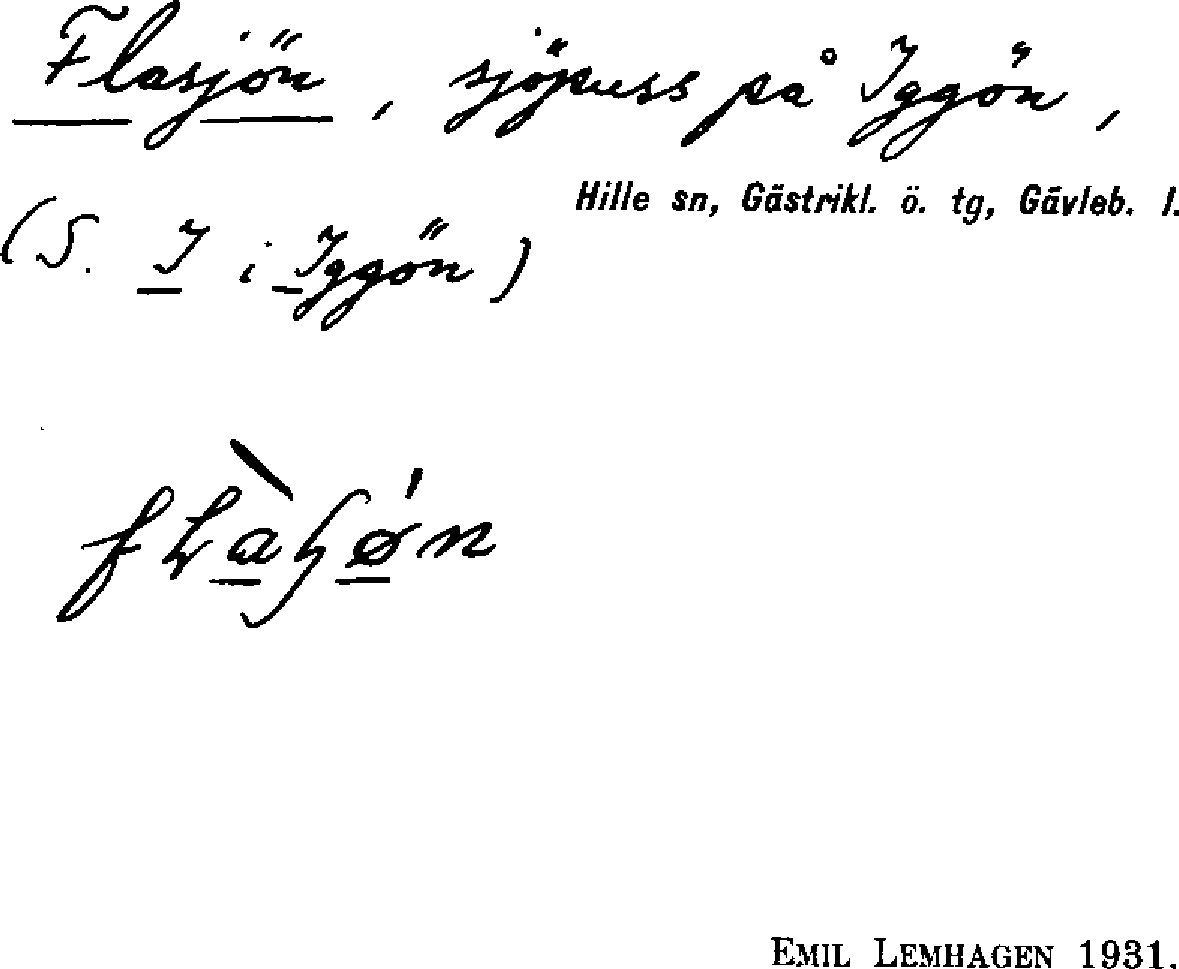 Flasjön, sjöpuss på Iggön,
Hille sn, Gästrikl. ö. tg, Gävleb. l.
(S. I i Iggön)
EMIL LEMHAGEN 1931.